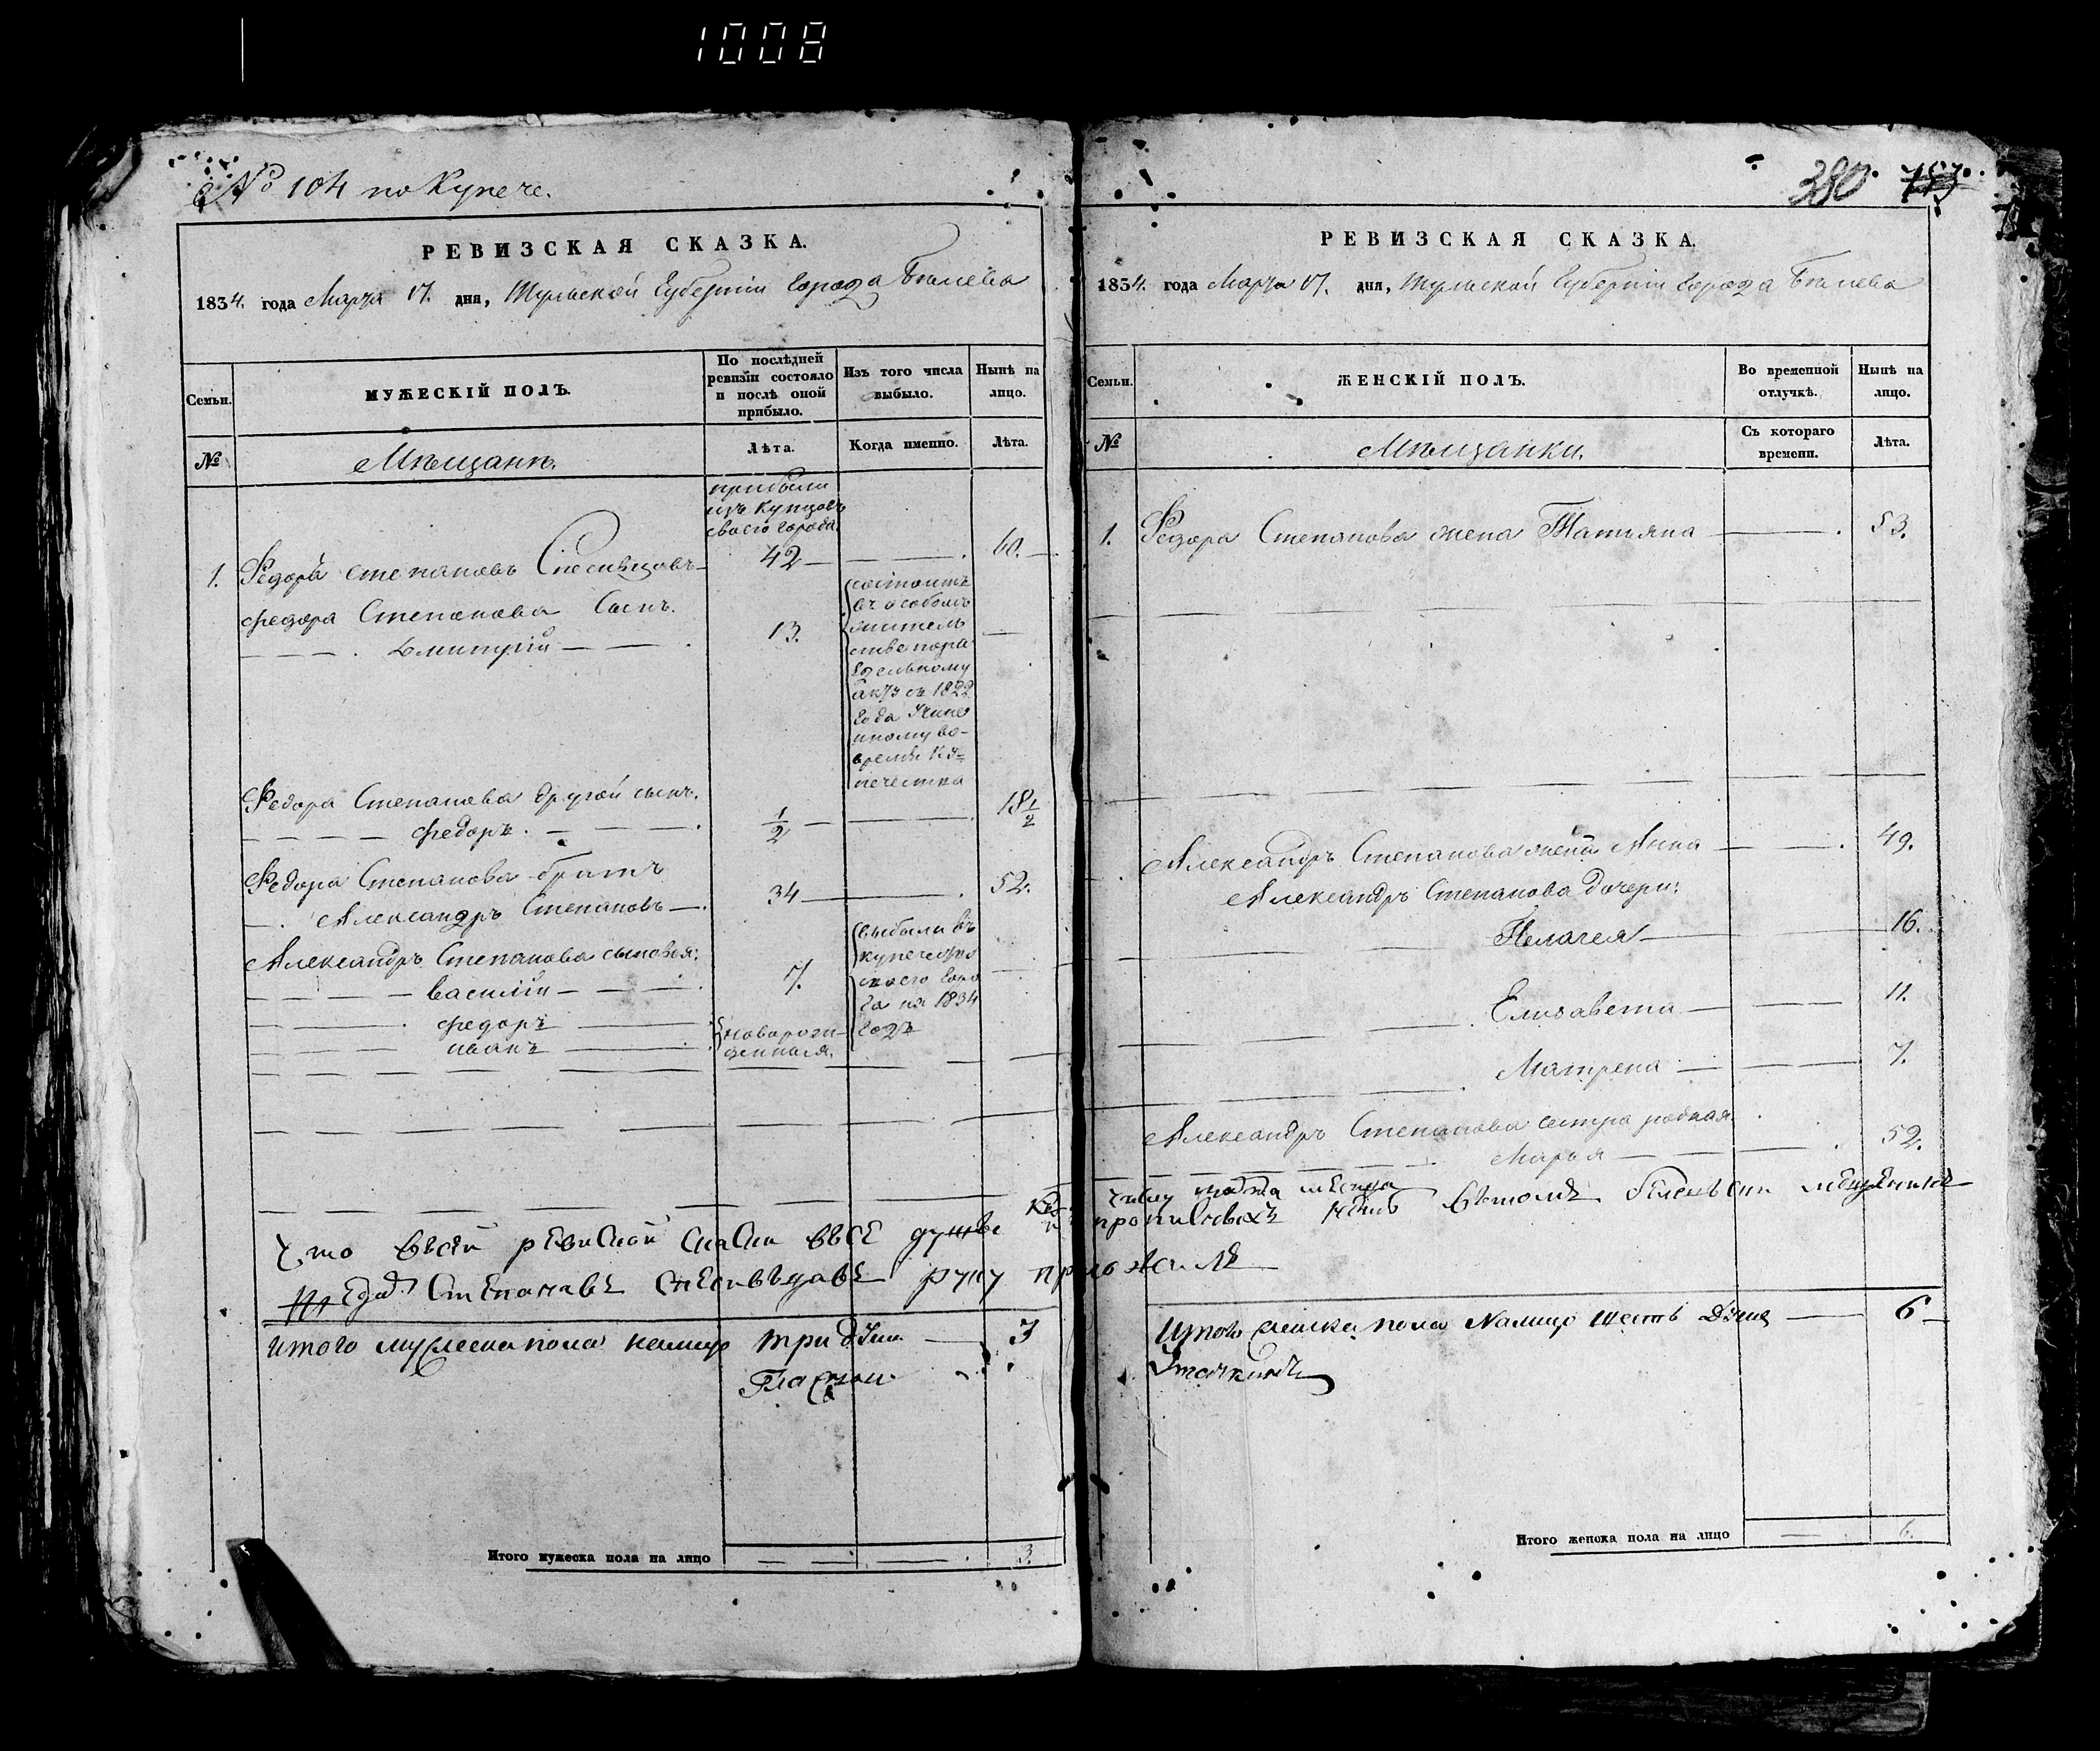 1008
№ 104 по Купече.
РЕВИЗСКАЯ СКАЗКА.
1834. года Марта 17. дня, Тульской Губернiи города Бѣлева
Семьи.
МУЖЕСКІЙ ПОЛЪ.
По послѣдней
ревизіи состояло
и послѣ оной
прибыло.
Изъ того числа
выбыло.
Нынѣ на
лицо.
№
Мѣщанъ.
Лѣта.
Когда именно.
Лѣта.
прибыли
изъ купцовъ
своего города
1. Федоръ степановъ Спесивцовъ 42 60.
федора Степанова Сынъ.
Дмитрій 13.
состоитъ
въ особомъ
житель
стве по ра
здельному
акту съ 1822
года учине
нному во
время ку=
печества
Федора Степанова другой сынъ.
федоръ. 1/2 18 1/2
Федора Степанова братъ
Александръ Степановъ 34 52.
Александръ Степанова сыновья:
василій 7.
федоръ
иванъ
новорож
денныя.
выбыли въ
купечество
своего горо
да на 1834
годъ
Что всѣй ревиской скаски ввсе душы
Степанавъ Спесивъцавъ руку приложилъ
итого мужеска пола налицо три души 3
Гласной
Итого мужеска пола на лицо 3.
380. 757.
РЕВИЗСКАЯ СКАЗКА.
1834. года Марта 17. дня, Тульской Губернiи города Бѣлева
Семьи.
ЖЕНСКІЙ ПОЛЪ.
Во временной
отлучкѣ.
Нынѣ на
лицо.
№
Мѣщанки.
Съ котораго
времени.
Лѣта.
1. Федора Степанова жена Татьяна 53.
Александръ Степанова жена Анна 49.
Александръ Степанова дочери:
Пелагея 16.
Елизавета 11.
Матрена 7.
Александръ Степанова сестра родная
Марья 52.
Итого женска пола налицо шесть душъ 6
Уткинъ
Итого женска пола на лицо 6.